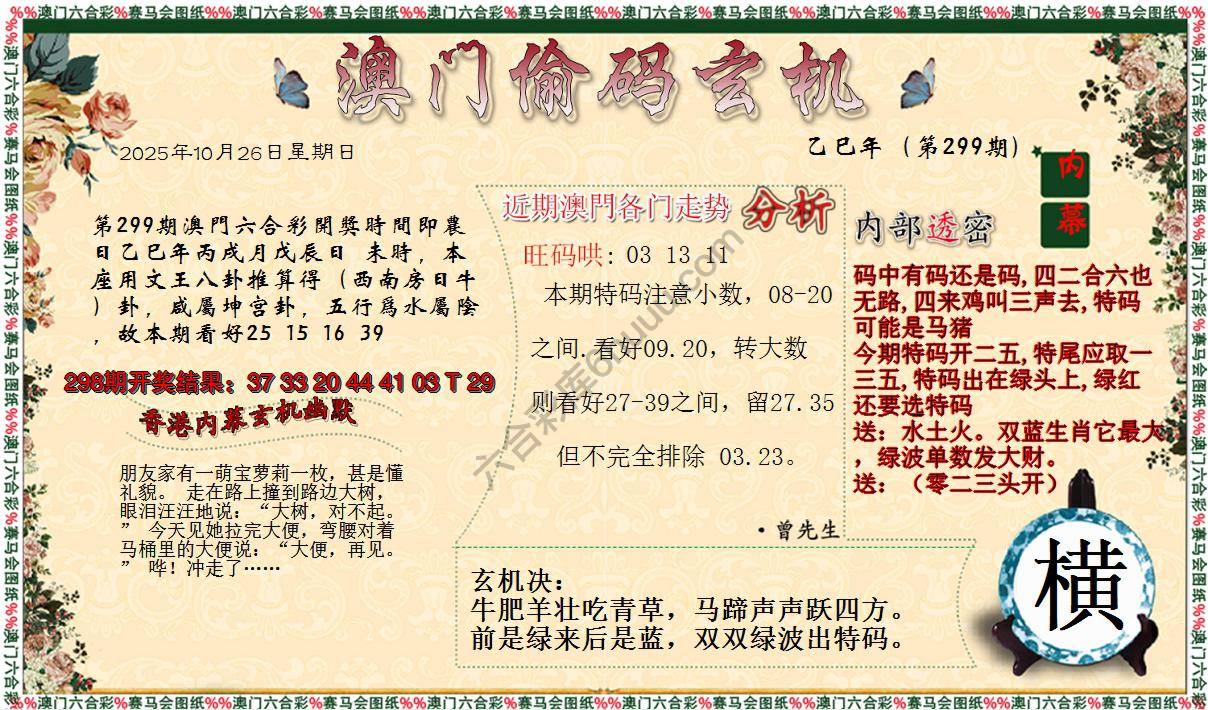 %%澳门六合彩%赛马会图纸%%澳门六合彩%赛马会图纸%%澳门六合彩%赛马会图纸%%澳门六合彩%赛马会图纸%%澳门六合彩%赛马会图纸%%澳门六合彩%赛马会图纸%%
澳门偷码玄机
2025年10月26日星期日
乙巳年（第299期）
内
幕
第299期澳門六合彩開獎時間即農
日乙巳年丙戌月戊辰日 未時，本
座用文王八卦推算得（西南房日牛
）卦，咸屬坤宫卦，五行爲水屬陰
，故本期看好25 15 16 39
298期开奖结果：37 33 20 44 41 03 T 29
香港内幕玄机幽默
朋友家有一萌宝萝莉一枚，甚是懂
礼貌。 走在路上撞到路边大树，
眼泪汪汪地说：“大树，对不起。
” 今天见她拉完大便，弯腰对着
马桶里的大便说：“大便，再见。
” 哗！冲走了……
近期澳門各门走势 分析
旺码哄：03 13 11
本期特码注意小数，08-20
之间.看好09.20，转大数
则看好27-39之间，留27.35
但不完全排除 03.23。
·曾先生
内部透密
码中有码还是码,四二合六也
无路,四来鸡叫三声去,特码
可能是马猪
今期特码开二五,特尾应取一
三五,特码出在绿头上,绿红
还要选特码
送：水土火。双蓝生肖它最大
，绿波单数发大财。
送：（零二三头开）
玄机决：
牛肥羊壮吃青草，马蹄声声跃四方。
前是绿来后是蓝，双双绿波出特码。
横
六合彩库6uuu.com